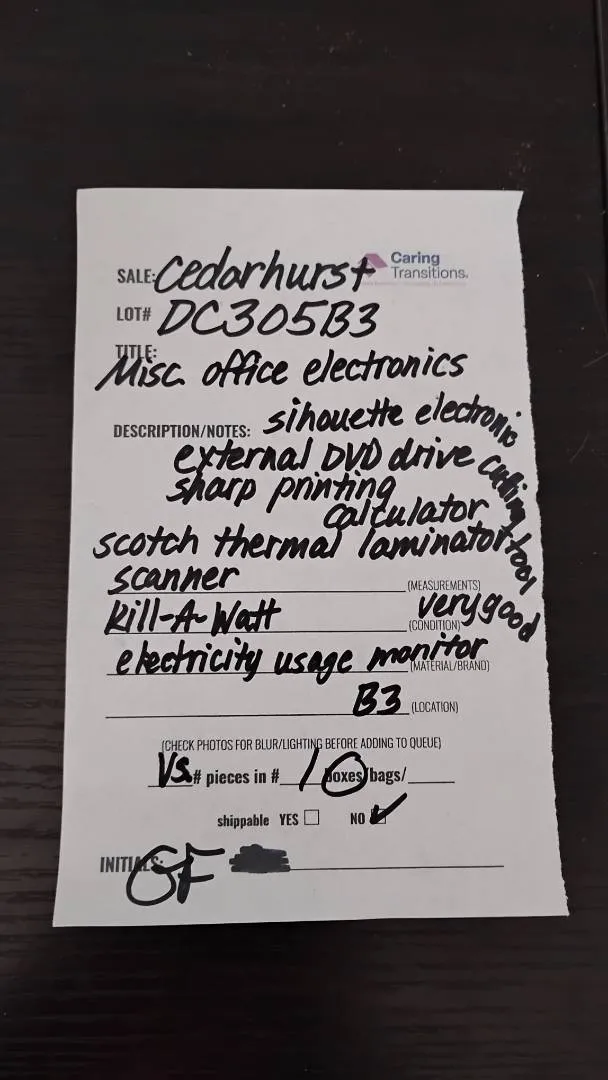 Caring
Transitions.
SALE: Cedarhurst
LOT# DC305B3
TITLE:
Misc. office electronics
DESCRIPTION/NOTES: sihouette electronic cutting tool
external DVD drive
sharp printing
calculator
scotch thermal laminator
scanner (MEASUREMENTS)
Kill-A-Watt very good (CONDITION)
electricity usage monitor (MATERIAL/BRAND)
B3 (LOCATION)
(CHECK PHOTOS FOR BLUR/LIGHTING BEFORE ADDING TO QUEUE)
Vs. # pieces in # 1 boxes/bags/
shippable YES NO ✓
INITIALS: GF